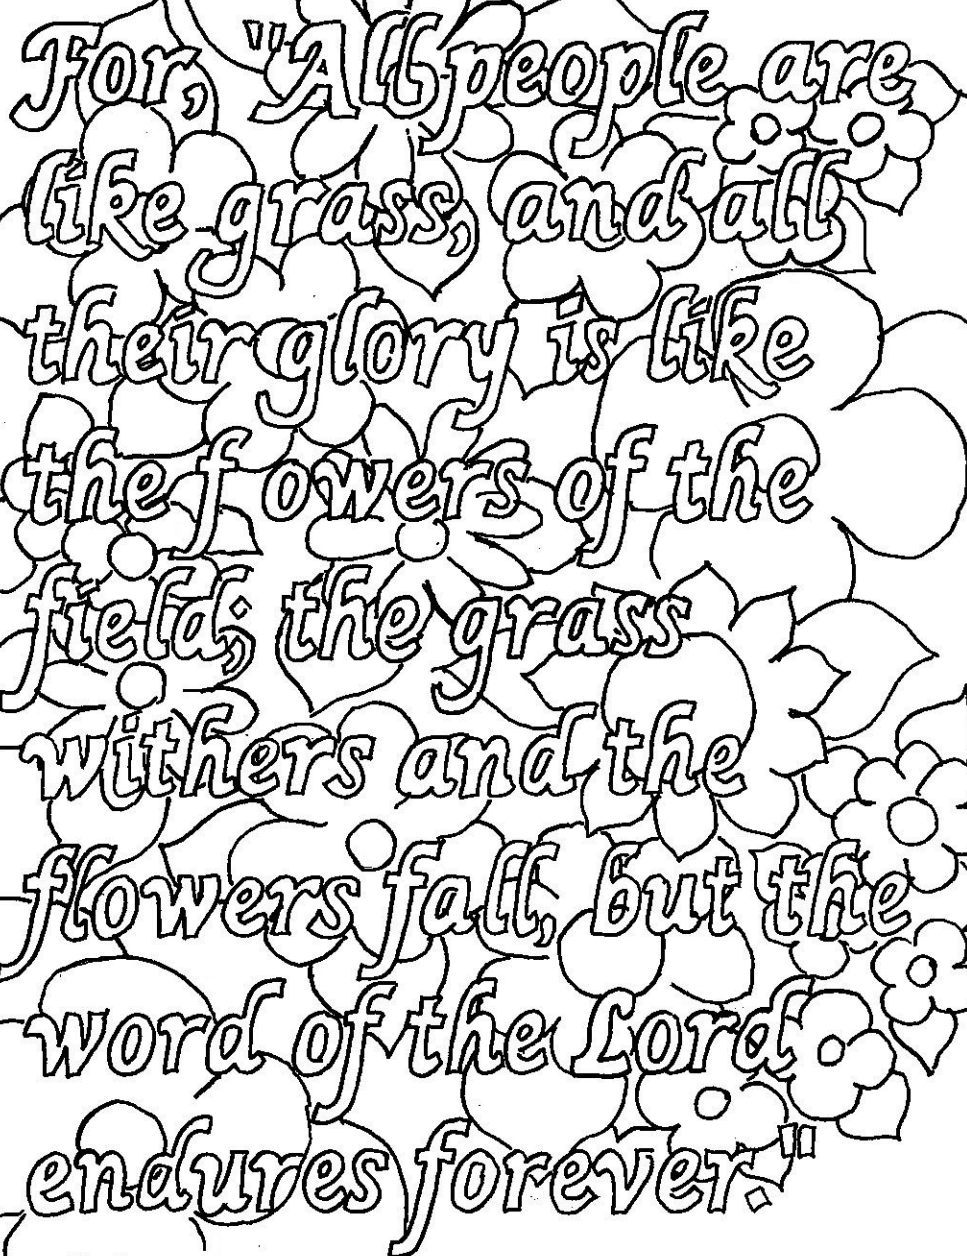 For, "All people are
like grass, and all
their glory is like
the f owers of the
field; the grass
withers and the
flowers fall, but the
word of the Lord
endures forever."